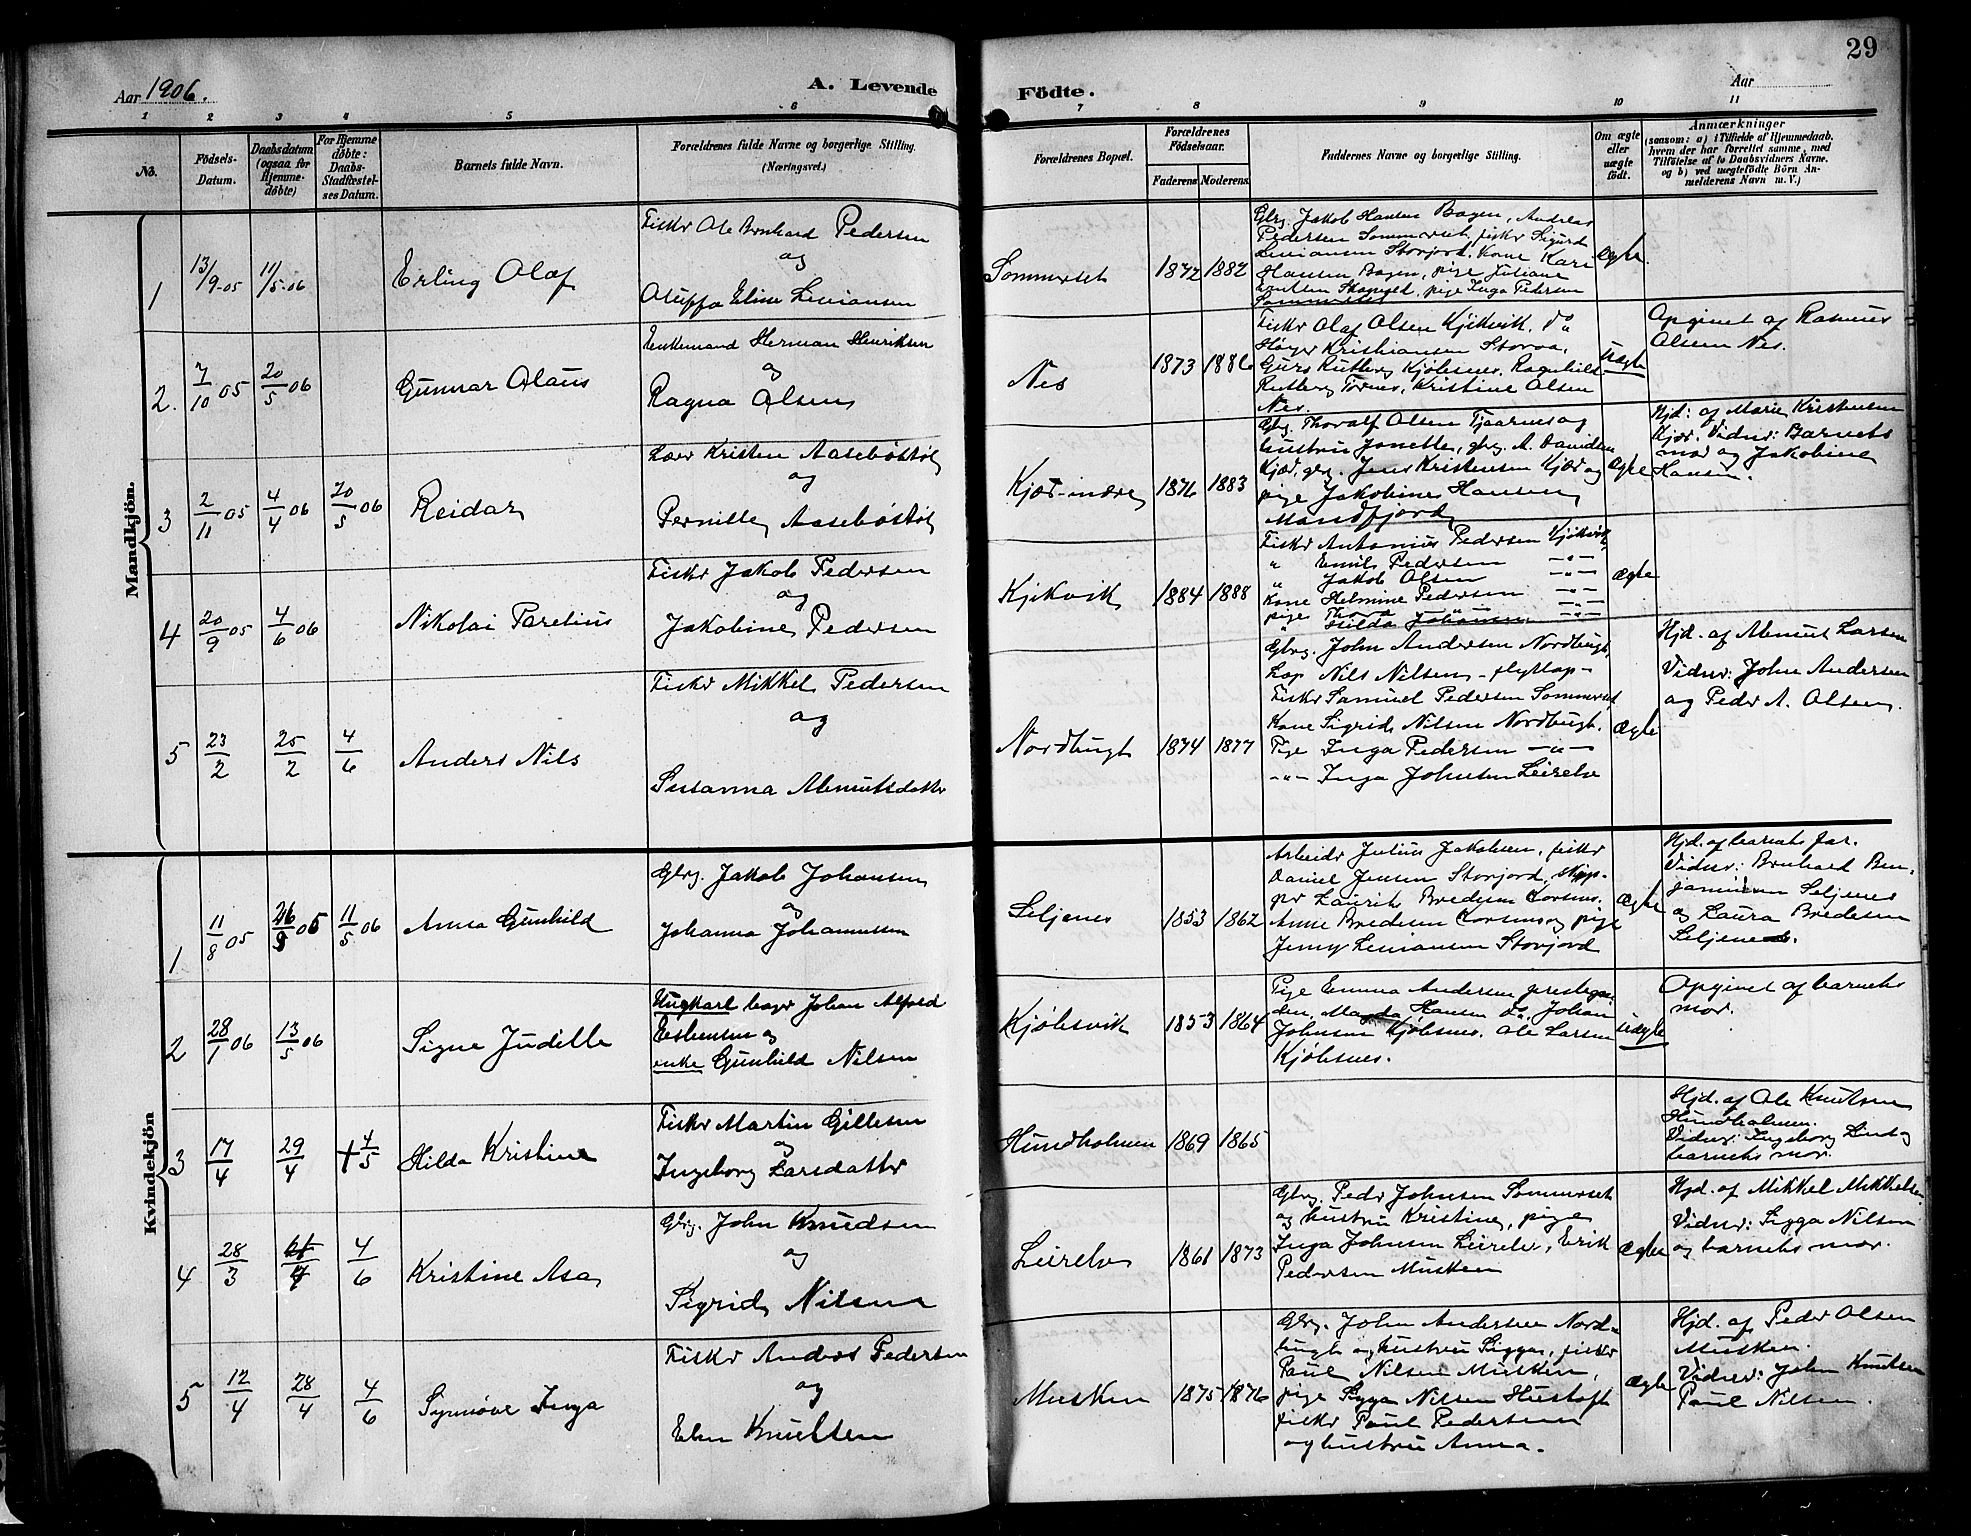 29
Aar 1906.
A. Levende
Födte.
Aar
1 2 3 4 5 6 7 8 9 10 11
No.
Födsels-
Datum.
Daabsdatum
(ogsaa for
Hjemme-
döbte)
For Hjemme
döbte:
Daabs-
Stadfæstel-
ses Datum.
Barnets fulde Navn.
Forældrenes fulde Navne og borgerlige Stilling.
(Næringsvei.)
Forældrenes Bopæl.
Forældrenes
Födselsaar.
Faderens Moderens
Faddernes Navne og borgerlige Stilling.
Om ægte
eller
uægte
født.
Anmærkninger
(saasom: a) i Tilfælde af Hjemmedaab.
hvem der har forrettet samme, med
Tilföielse af to Daabsvidners Navne.
og b) ved uægtefödte Börn An-
melderens Navn m. V.)
Mandkjön.
1
13/9-05
11/5-06
Erling Olaf
Fisker Ole Bernhard Pedersen
og
Eline
Sommerset
1872
1882
Gbrg. Jakob Hansen Bogen, Andreas
Pedersen Sommerset, fisker Sigurd
Storjord, Kone
Hansen Bogen, pige Juliane
pige Inga Pedersen
Sommerset
ægte
2.
7/10 05
20/5 06
Gunnar Olaus
Enkemand Herman Henriksen
og
Ragna Olsen
Nes
1873
1886
Fisker Olaf Olsen Kjikvik, do
Kristiansen
Kjöbsnes, Ragnhild
Kristine Olsen
Nes.
uægte
Opgivet af Rasmus
Olsen Nes.
3
2/11 05
4/4 06
20/5 06
Reidar
Lærer Kristen Aasebøstøl
og
Pernille Aasebøstøl
Kjær-indre
1876
1883
Gbrg. Thoralf Olsen Tjaarnes og
hustru Janette, gbrg. A. Danielsen
Kjær, gbg. Jens Kristensen Kjær og
pige Jakobine Hansen
Mandfjord
ægte
Hjd: af Marie Kristensen
Kjær. Vidner: Barnets
mor og Jakobine
Hansen.
4
20/9 05
4/6 06
Nikolai Parelius
Fisker Jakob Pedersen
og
Jakobine Pedersen
Kjikvik
1884
1888
Fisker Antonius Pedersen Kjikvik
" Emil Pedersen -"-
" Jakob Olsen -"-
Kone Helmine Pedersen -"-
pige Thora -"-
" Hilda Johansen -"-
ægte
5
23/2
25/2
4/6
Anders Nils
Fisker Mikkel Pedersen
og
Susanna
Nordbugt
1874
1877
Gbrg. John Andersen Nordbugt,
Lap Nils Nilsen - flyttlap -
Fisker Samuel Pedersen Sommerset
Kone Sigrid Nilsen Nordbugt.
Pige Inga Pedersen -"-
-"- Inga Johnsen Leirelv
ægte
Hjd. af Larsen
Vidner: John Andersen
og Peder A. Olsen.
Kvindekjön
1
11/8 05
26/9 05
11/5 06
Anna Gunhild
Gbrg. Jakob Johansen
og
Johanna Johannessen
Seljenes
1853
1862
Arbeider Julius Jakobsen, fisker
Daniel Jensen Storjord, skip-
per Laurits Bredesen Korsnes.
Anne Bredesen Korsnes og pige
Jenny Storjord
ægte
Hjd. af barnets far.
Vidner: Bernhard Ben-
jaminsen Seljenes
og Laura Bredesen
Seljenes.
2
28/1 06
13/5 06
Signe Judille
Ungkarl bager Johan Alfred
Esbensen og
enke Gunhild Nilsen
Kjöbsvik
1853
1864
Pige Emma Andersen prestegaar-
den, Magda Hansen do, Johan
Johnsen Kjöbsnes. Ole Larsen
Kjöbsnes.
uægte
Opgivet af barnets
mor.
3
17/4
29/4
+ 4/5
Hilda Kristine
Fisker Martin Gillesen
og
Ingeborg Larsdatter
Hundholmen
1869
1865
Hjd. af Ole Knutsen
Hundholmen.
Vidner: Ingeborg Lind og
barnets mor.
4
28/3
4/6
Kristine Asa
Gbrg. John Knudsen
og
Sigrid Nilsen
Leirelv
1861
1873
Gbrg. Peder Johnsen Sommerset
og hustru Kristine, pige
Inga Johnsen Leirelv, Erik
Pedersen Musken
ægte
Hjd. af Mikkel Mikkelsen
Vidner: Sigga Nilsen
og barnets mor.
5
12/4
28/4
4/6
Synnöve Inga
Fisker Anders Pedersen
og
Elen Knutsen
Musken
1875
1876
Gbrg. John Andersen Nord-
bugt og hustru Sigga, fisker
Paul Nilsen Musken,
pige Sigga Nilsen Hustoft
fisker Paul Pedersen
og hustru Anna.
ægte
Hjd. af Peder Olsen
Musken.
Vidner: John Knutsen
Paul Nilsen.